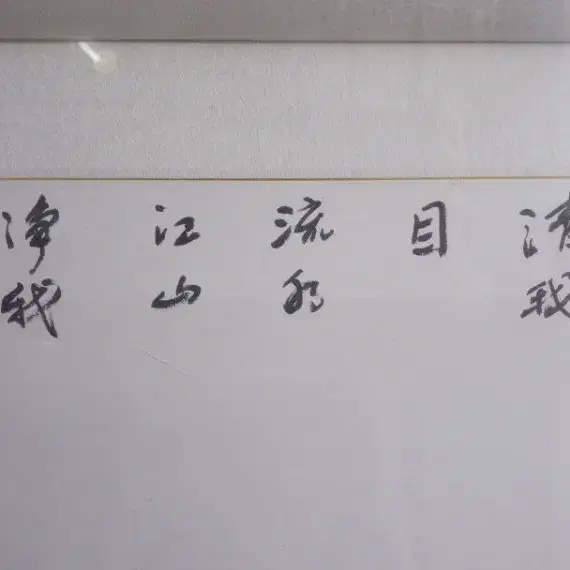 清我
目
流水
江山
净我